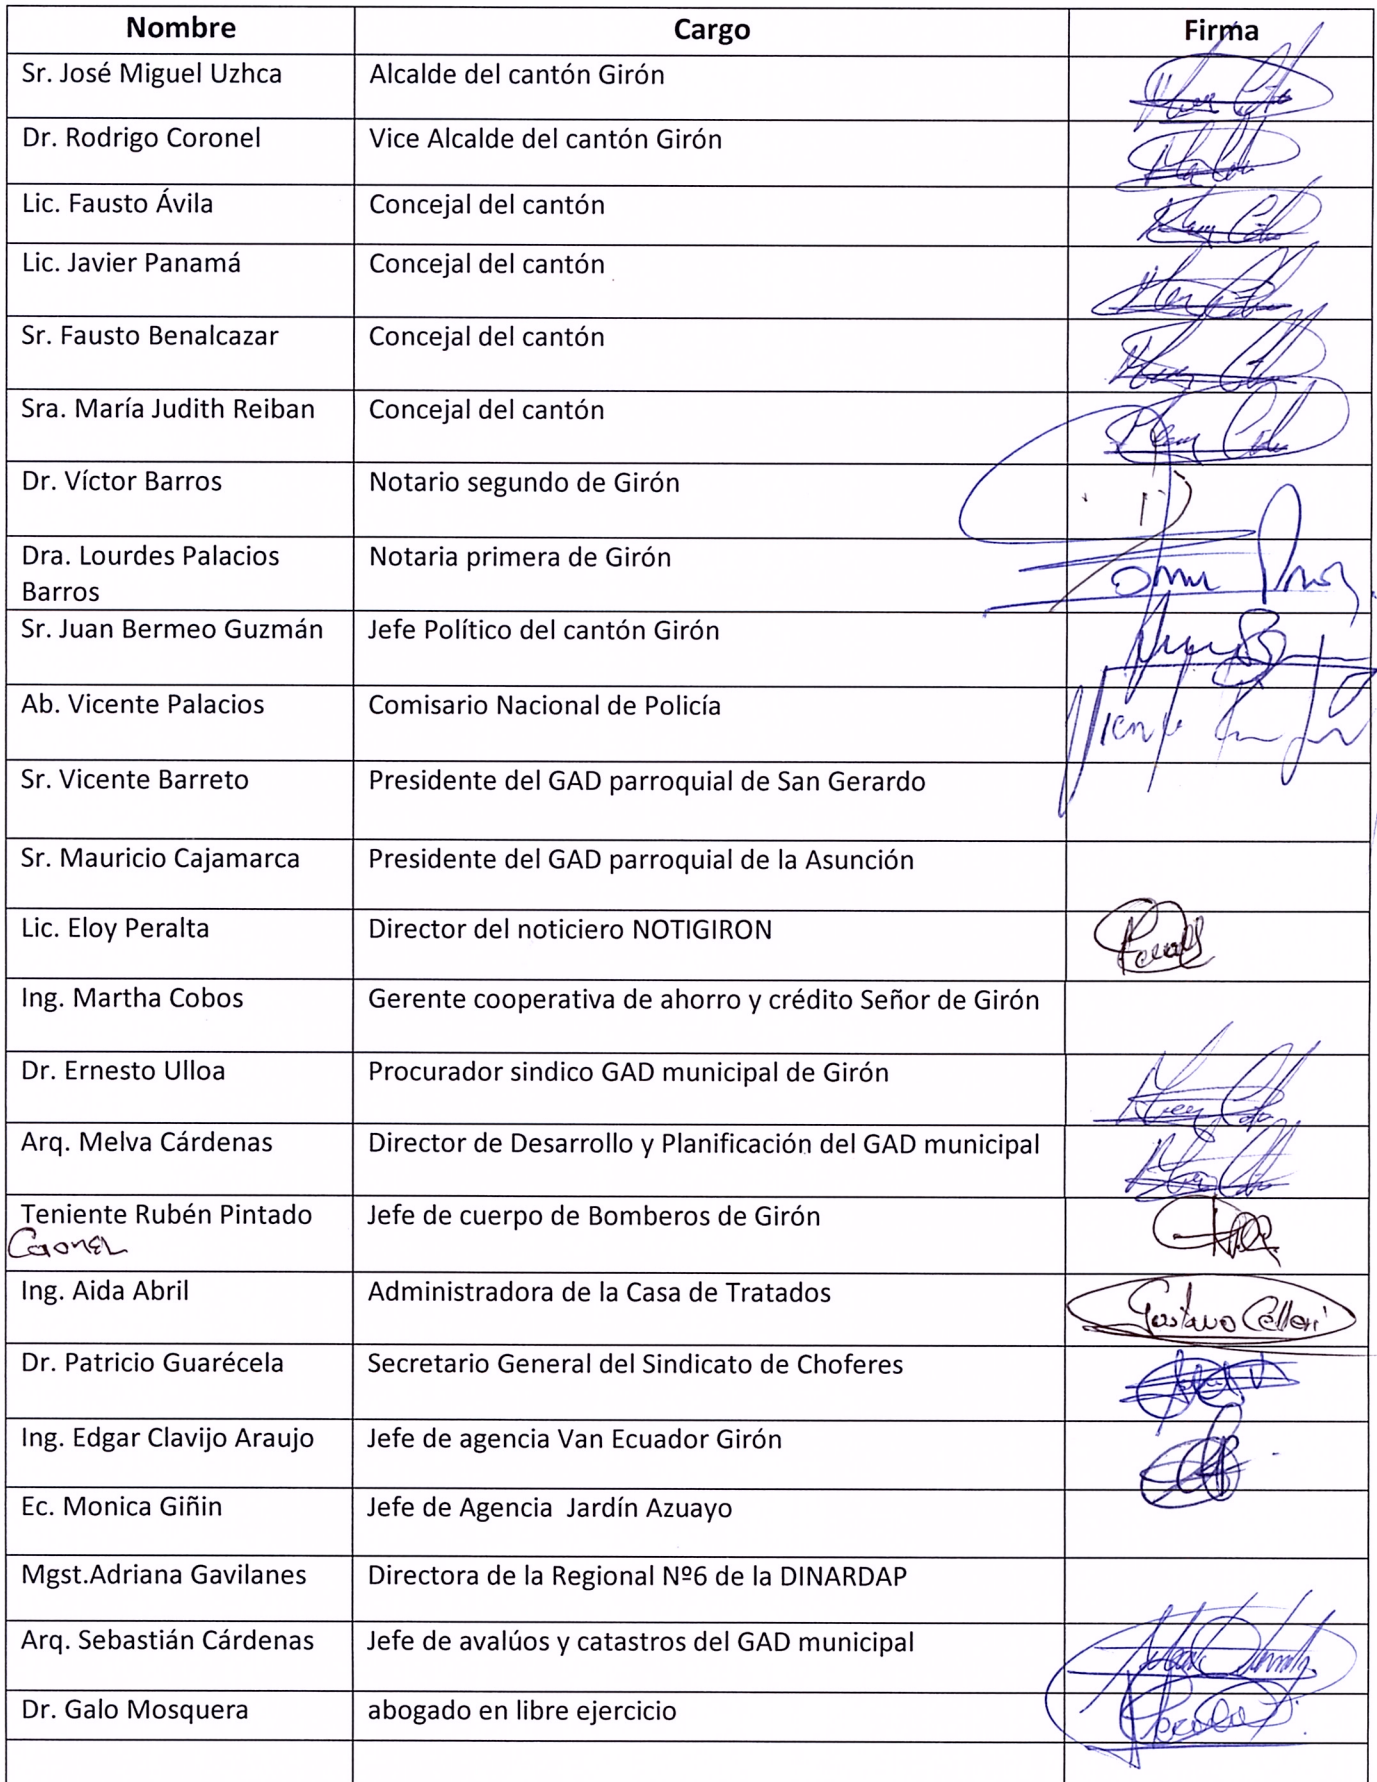 Nombre Cargo Firma
Sr. José Miguel Uzhca Alcalde del cantón Girón
Dr. Rodrigo Coronel Vice Alcalde del cantón Girón
Lic. Fausto Ávila Concejal del cantón
Lic. Javier Panamá Concejal del cantón
Sr. Fausto Benalcazar Concejal del cantón
Sra. María Judith Reiban Concejal del cantón
Dr. Víctor Barros Notario segundo de Girón
Dra. Lourdes Palacios Notaria primera de Girón
Barros
Sr. Juan Bermeo Guzmán Jefe Político del cantón Girón
Ab. Vicente Palacios Comisario Nacional de Policía
Sr. Vicente Barreto Presidente del GAD parroquial de San Gerardo
Sr. Mauricio Cajamarca Presidente del GAD parroquial de la Asunción
Lic. Eloy Peralta Director del noticiero NOTIGIRON
Ing. Martha Cobos Gerente cooperativa de ahorro y crédito Señor de Girón
Dr. Ernesto Ulloa Procurador sindico GAD municipal de Girón
Arq. Melva Cárdenas Director de Desarrollo y Planificación del GAD municipal
Teniente Rubén Pintado Jefe de cuerpo de Bomberos de Girón
Ing. Aida Abril Administradora de la Casa de Tratados Gustavo Celleri
Dr. Patricio Guarécela Secretario General del Sindicato de Choferes
Ing. Edgar Clavijo Araujo Jefe de agencia Van Ecuador Girón
Ec. Monica Giñin Jefe de Agencia Jardín Azuayo
Mgst.Adriana Gavilanes Directora de la Regional Nº6 de la DINARDAP
Arq. Sebastián Cárdenas Jefe de avalúos y catastros del GAD municipal
Dr. Galo Mosquera abogado en libre ejercicio